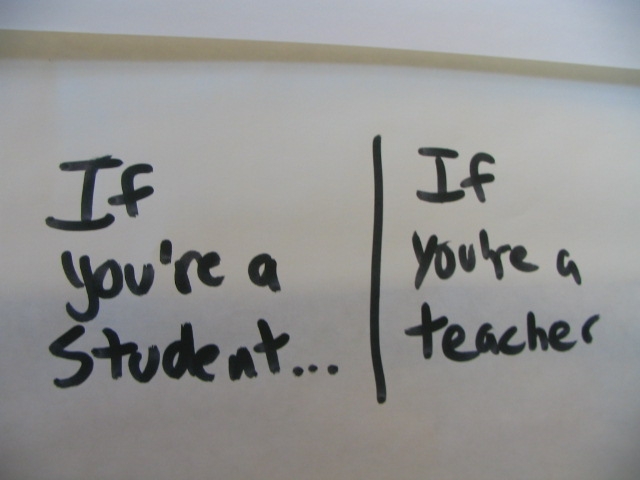 If
you're a
Student...
If
you're a
teacher